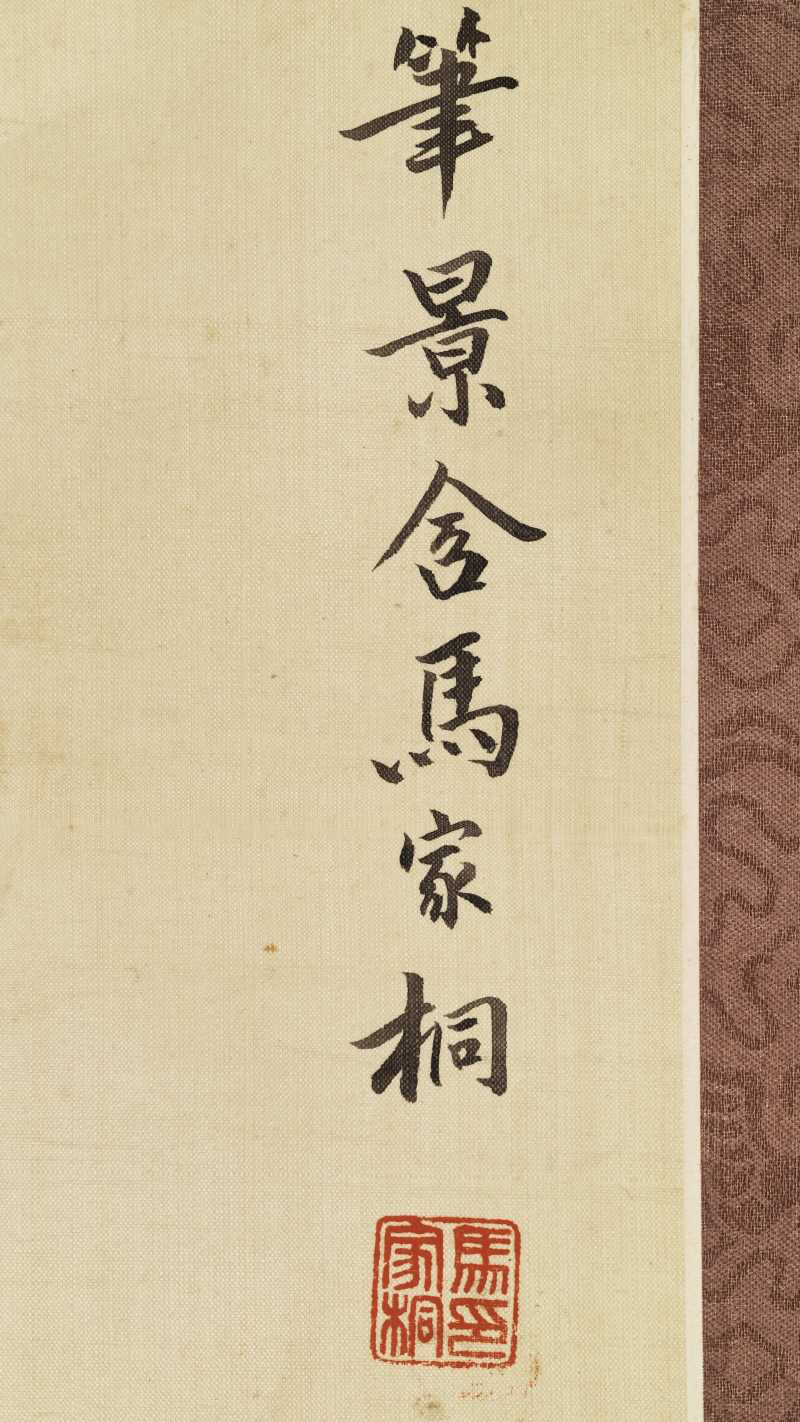 筆景含馬家桐
馬家桐印